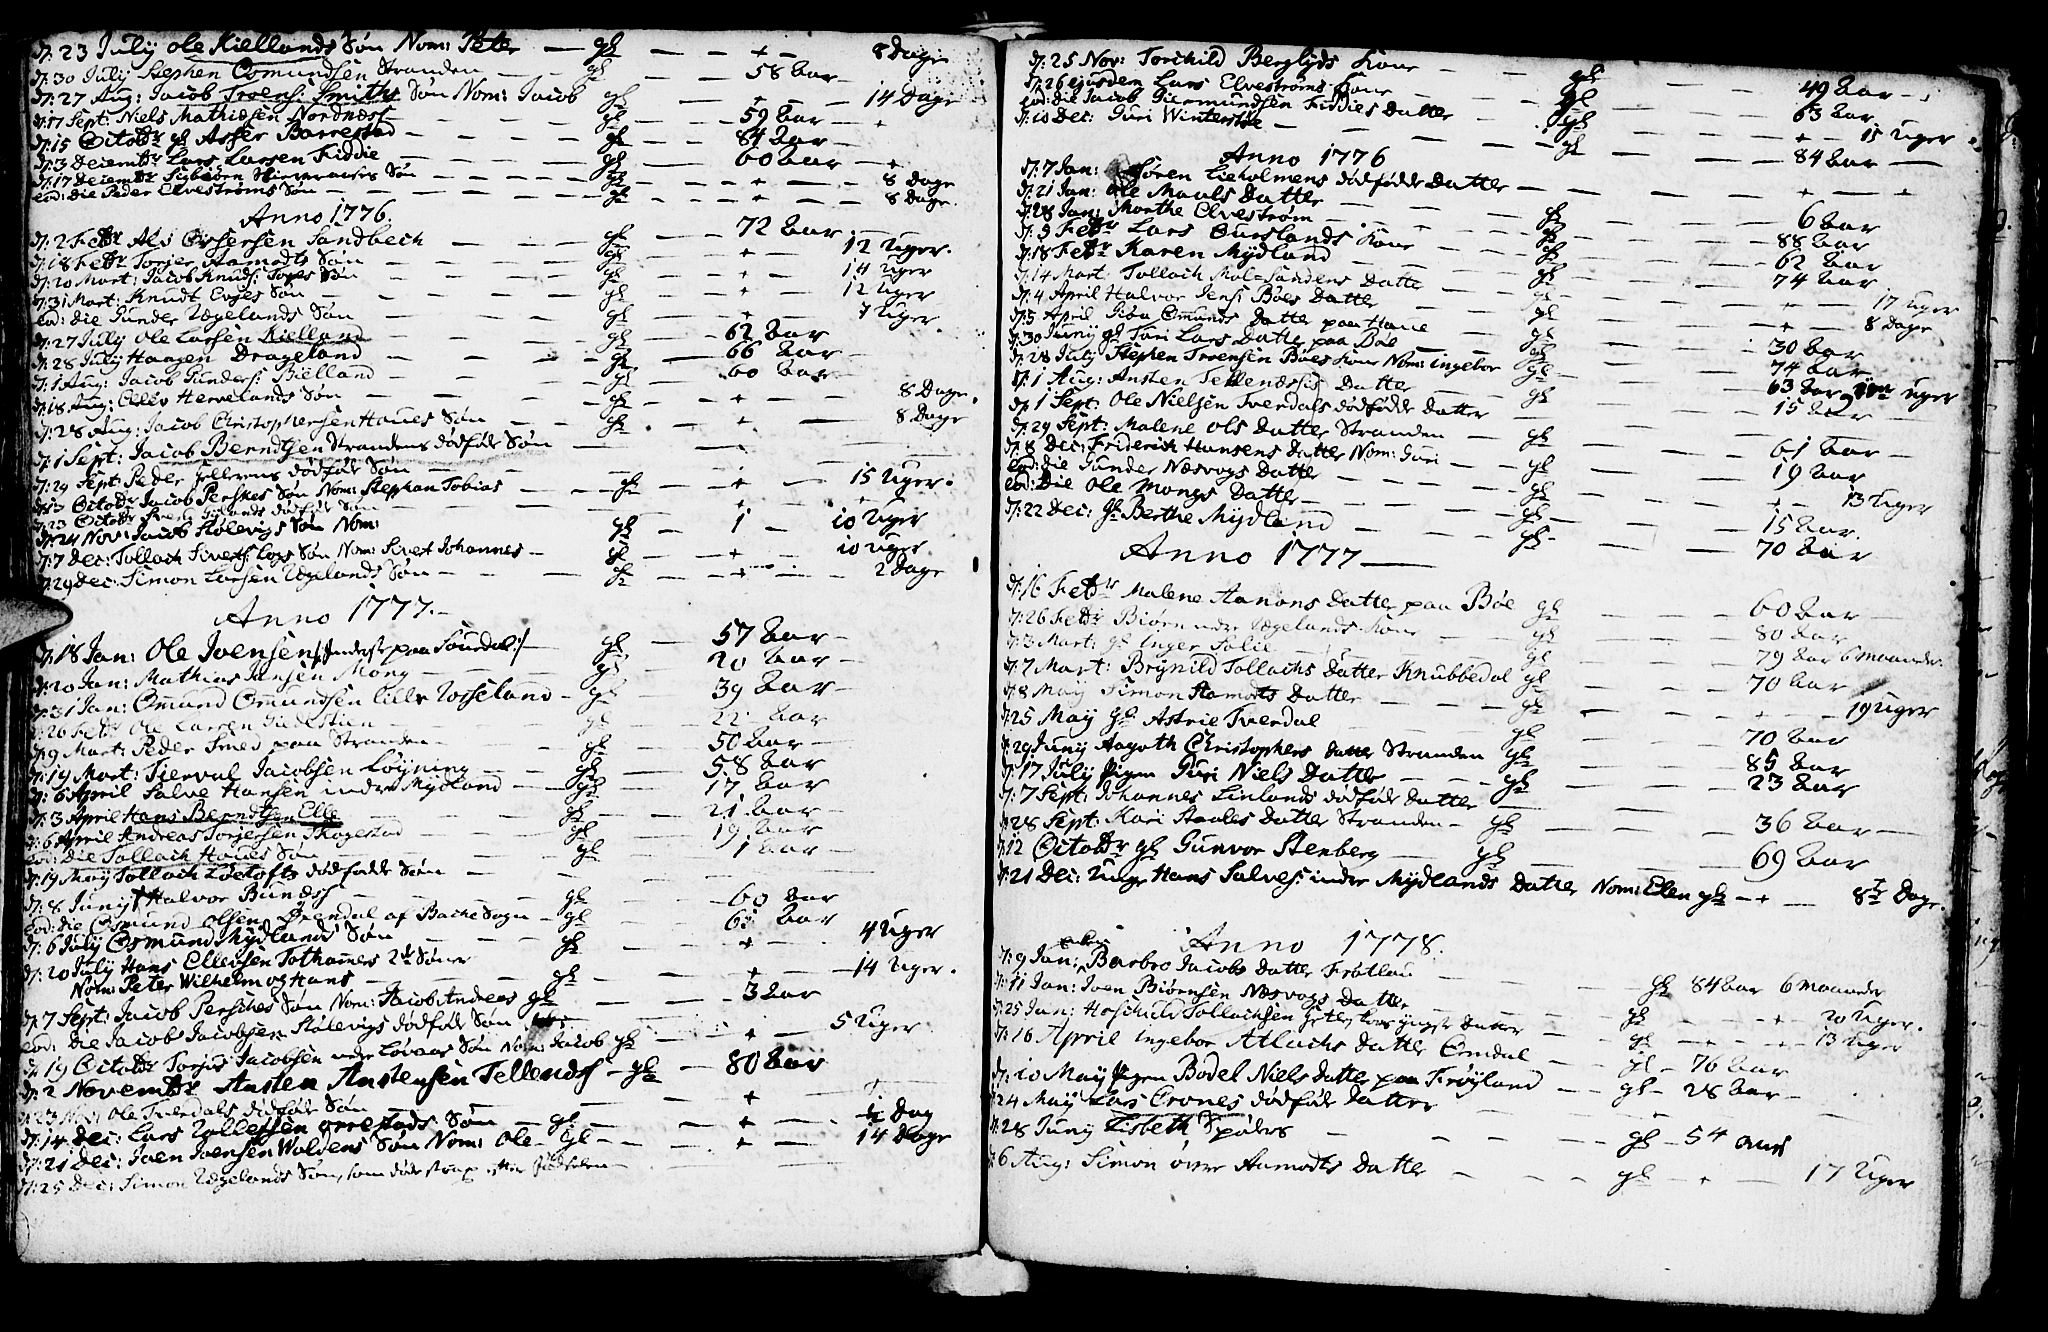 d: 23 July Ole Kiellands Søn Nom: Peter — gl — + — 8 Dage
d: 30 July Stephen Osmundsen Stranden — gl — 58 Aar —
d: 27 Aug: Jacob Troens: Smiths Søn Nom: Jacob gl — + — 14 Dage
d: 17 Sept: Niels Mathiesen Nordnæss — gl — 59 Aar —
d: 15 Octobr gl Asser Barrestad — gl — 84 Aar —
d: 3 Decembr Lars Larsen Fiddie — gl — 60 Aar —
d: 17 Decembr Sigbiørn Søn — gl — + — 8 Dage
eod: die Peder Elvestrøms Søn — gl — + — 8 Dage.
Anno 1776.
d: 2 Febr Als Sandbech — gl — 72 Aar
d: 18 Febr Torjer Aamodts Søn — gl — + — 12 Uger.
d: 20 Mart: Jacob Knuds: Søn — gl — + — 14 Uger
d: 31 Mart: Knudt Søn — gl — + — 12 Uger
eod: die Gunder Ægelands Søn — gl — + — Uger.
d: 27 July Ole Larsen Kielland — gl — 62 Aar
d: 28 July Haagen Drageland — gl — 66 Aar —
d: 1 Aug: Jacob Gunders: Bielland — gl — 60 Aar —
d: 18 Aug: Hervelands Søn — gl — + — 8 Dage.
d: 28 Aug: Jacob Christophersen Haues Søn — gl — + — 8 Dage
d: 1 Sept: Jacob Berndtsen Strandens dødføde Søn —
d: 29 Sept: Peder dødføde Søn —
Octobr Jacob Perskes Søn Nom: Stephan Tobias — gl — + — 15 Uger.
d: 23 Octobr dødføde Søn
d: 24 Nov: Jacob Stølevigs Søn Nom: gl — 1 — 10 Uger
d: 7 Dec: Tollach Siverts: Søn Nom: Sivert Johannes — gl — + — 10 Uger.
d: 29 Dec: Simon Larsen Ægelands Søn — gl — + — 2 Dage
Anno 1777.
d: 18 Jan: Ole Ivensen /: Inderst paa Souedal :/ — gl — 57 Aar —
d: 20 Jan: Mathias Jansen Mong — gl — 20 Aar —
d: 31 Jan: Omund Omundsen lille Rosseland — gl — 39 Aar —
d: 26 Febr Ole Larsen — gl — 22 Aar
d: 9 Mart: Peder Smed paa Stranden — gl — 50 Aar —
d: 19 Mart: Tierval Jacobsen Løyning — gl — 58 Aar
d: 6 April Salve Hansen indre Mydland — gl — 17 Aar
d: 3 April Hans Berndtsen Elle — gl — 21 Aar —
d: 6 April Andreas Torjersen Skogestad — gl — 19 Aar
eod: die Tollach Haues Søn — gl — 1 Aar —
d: 19 May Tollach Løetofts dødføde Søn —
d: 8 Juny Halvor — gl — 60 Aar
eod: die Osmund Olsen Ørendal af Backe Sogn — gl — Aar
d: 6 July Osmund Mydlands Søn — gl — + — 4 Uger
d: 20 July Hans Ellensen Tothames 2de Sønner
Nom: Peter Wilhelm og Hans — gl — + — 14 Uger.
d: 7 Sept: Jacob Perschkes Søn Nom: Jacob Andreas gl — 3 Aar
eod: die Jacob Jacobsen Stølevigs dødføde Søn
d: 19 Octobr Torjus Jacobsen Søn Nom: Jacob gl — + — 5 Uger
d: 2 Novembr Ansten Anstensen Tellends — gl — 80 Aar
d: 23 Nov: Ole Tverdals dødføde Søn — +
d: 14 Dec: Lars Tollefsen Ørrestads Søn — gl — + — ½ Dag
d: 21 Dec: Iven Ivensen Woldens Søn Nom: Ole — gl — + — 14 Dage
d: 25 Dec: Simon Ægelands Søn, som døde strax efter fødselen —
d: 25 Nov: Torchild Berglyds Kone — gl — 49 Aar —
d: 26 ejusdem Lars Elvestrøms Kone — gl — 63 Aar
eod: die Jacob Giermundsen Fiddies Datter — gl — + — 11 Uger.
d: 10 Dec: Guri Winterstøe — gl — 84 Aar —
Anno 1776
d: 7 Jan: Søren Lieholmens dødføde Datter — + — +
d: 21 Jan: Ole Maals Datter — gl — 6 Aar
d: 28 Jan: Marthe Elvestrøm — gl — 88 Aar
d: 9 Febr Lars Kone — gl — 62 Aar
d: 18 Febr Karen Mydland — gl — 74 Aar
d: 14 Mart: Tollach Mal-Sandens Datter — gl — + — 17 Uger
d: 4 April Halvor Jens: Bøes Datter — gl — + — 8 Dage
d: 5 April Siba Omunds Datter paa Haue — gl — 30 Aar
d: 30 Juny gl Tori Lars Datter paa Bøe — gl — 74 Aar
d: 28 July Stephen Troensen Bøes Kone Nom: Ingebor gl — 63 Aar Uger
d: 1 Aug: Ansten Tellendsis Datter — gl — 15 Aar
d: 1 Sept: Ole Nielsen Tverdals dødføde Datter
d: 29 Sept: Malene Ols Datter Stranden — gl — 61 Aar —
d: 8 Dec: Friderich Hansens Datter Nom: Guri — gl — 19 Aar
eod: die Gunder Næsvogs Datter — gl — + — 13 Uger
eod: Die Ole Mongs Datter — gl — 15 Aar.
d: 22 Dec: gl Berthe Mydland — gl — 70 Aar
Anno 1777 —
d: 16 Febr Malene Aanons Datter paa Bøe gl — 60 Aar —
d: 26 Febr Biørn nedre Ægelands Kone — gl — 80 Aar
d: 3 Mart: gl Inger Solie — gl — 79 Aar 6 Maaneder
d: 7 Mart: Brynild Tollachs Datter Knubbedal gl — 70 Aar
d: 8 May Simon Aamodts Datter — gl — + — 19 Uger
d: 25 May gl Astrie Tverdal gl — 70 Aar
d: 29 Juny Aagoth Christophers Datter Stranden gl — 85 Aar
d: 17 July Pigen Guri Niels Datter — gl — 23 Aar
d: 7 Sept: Johannes Linlands dødføde Datter —
d: 28 Sept: Kari Aales Datter Stranden — gl — 36 Aar —
d: 12 Octobr gl Gunvor Stenberg — gl — 69 Aar
d: 21 Dec: Unge Hans Salves: indre Mydlands Datter Nom: Elen gl — + — 8te Dage.
Anno 1778.
d: 9 Jan: Enken Barbro Jacobs Datter Frøtlau — gl 84 Aar 6 Maaneder
d: 11 Jan: Iven Biørnsen Næsvogs Datter — gl — + — 20 Uger.
d: 25 Jan: Hoschuld Tollachsen yngste Datter — gl — + — 13 Uger
d: 16 April Ingebor Atlachs Datter Omdal — gl — 76 Aar
d: 10 May Pigen Bodel Niels Datter paa Frøyland — gl — 28 Aar —
d: 24 May Lars Crones dødføde Datter
d: 28 Juny Lisbeth Spølers — gl — 54 Aar
d: 6 Aug: Simon øvre Aamodts Datter — gl — + — 17 Uger